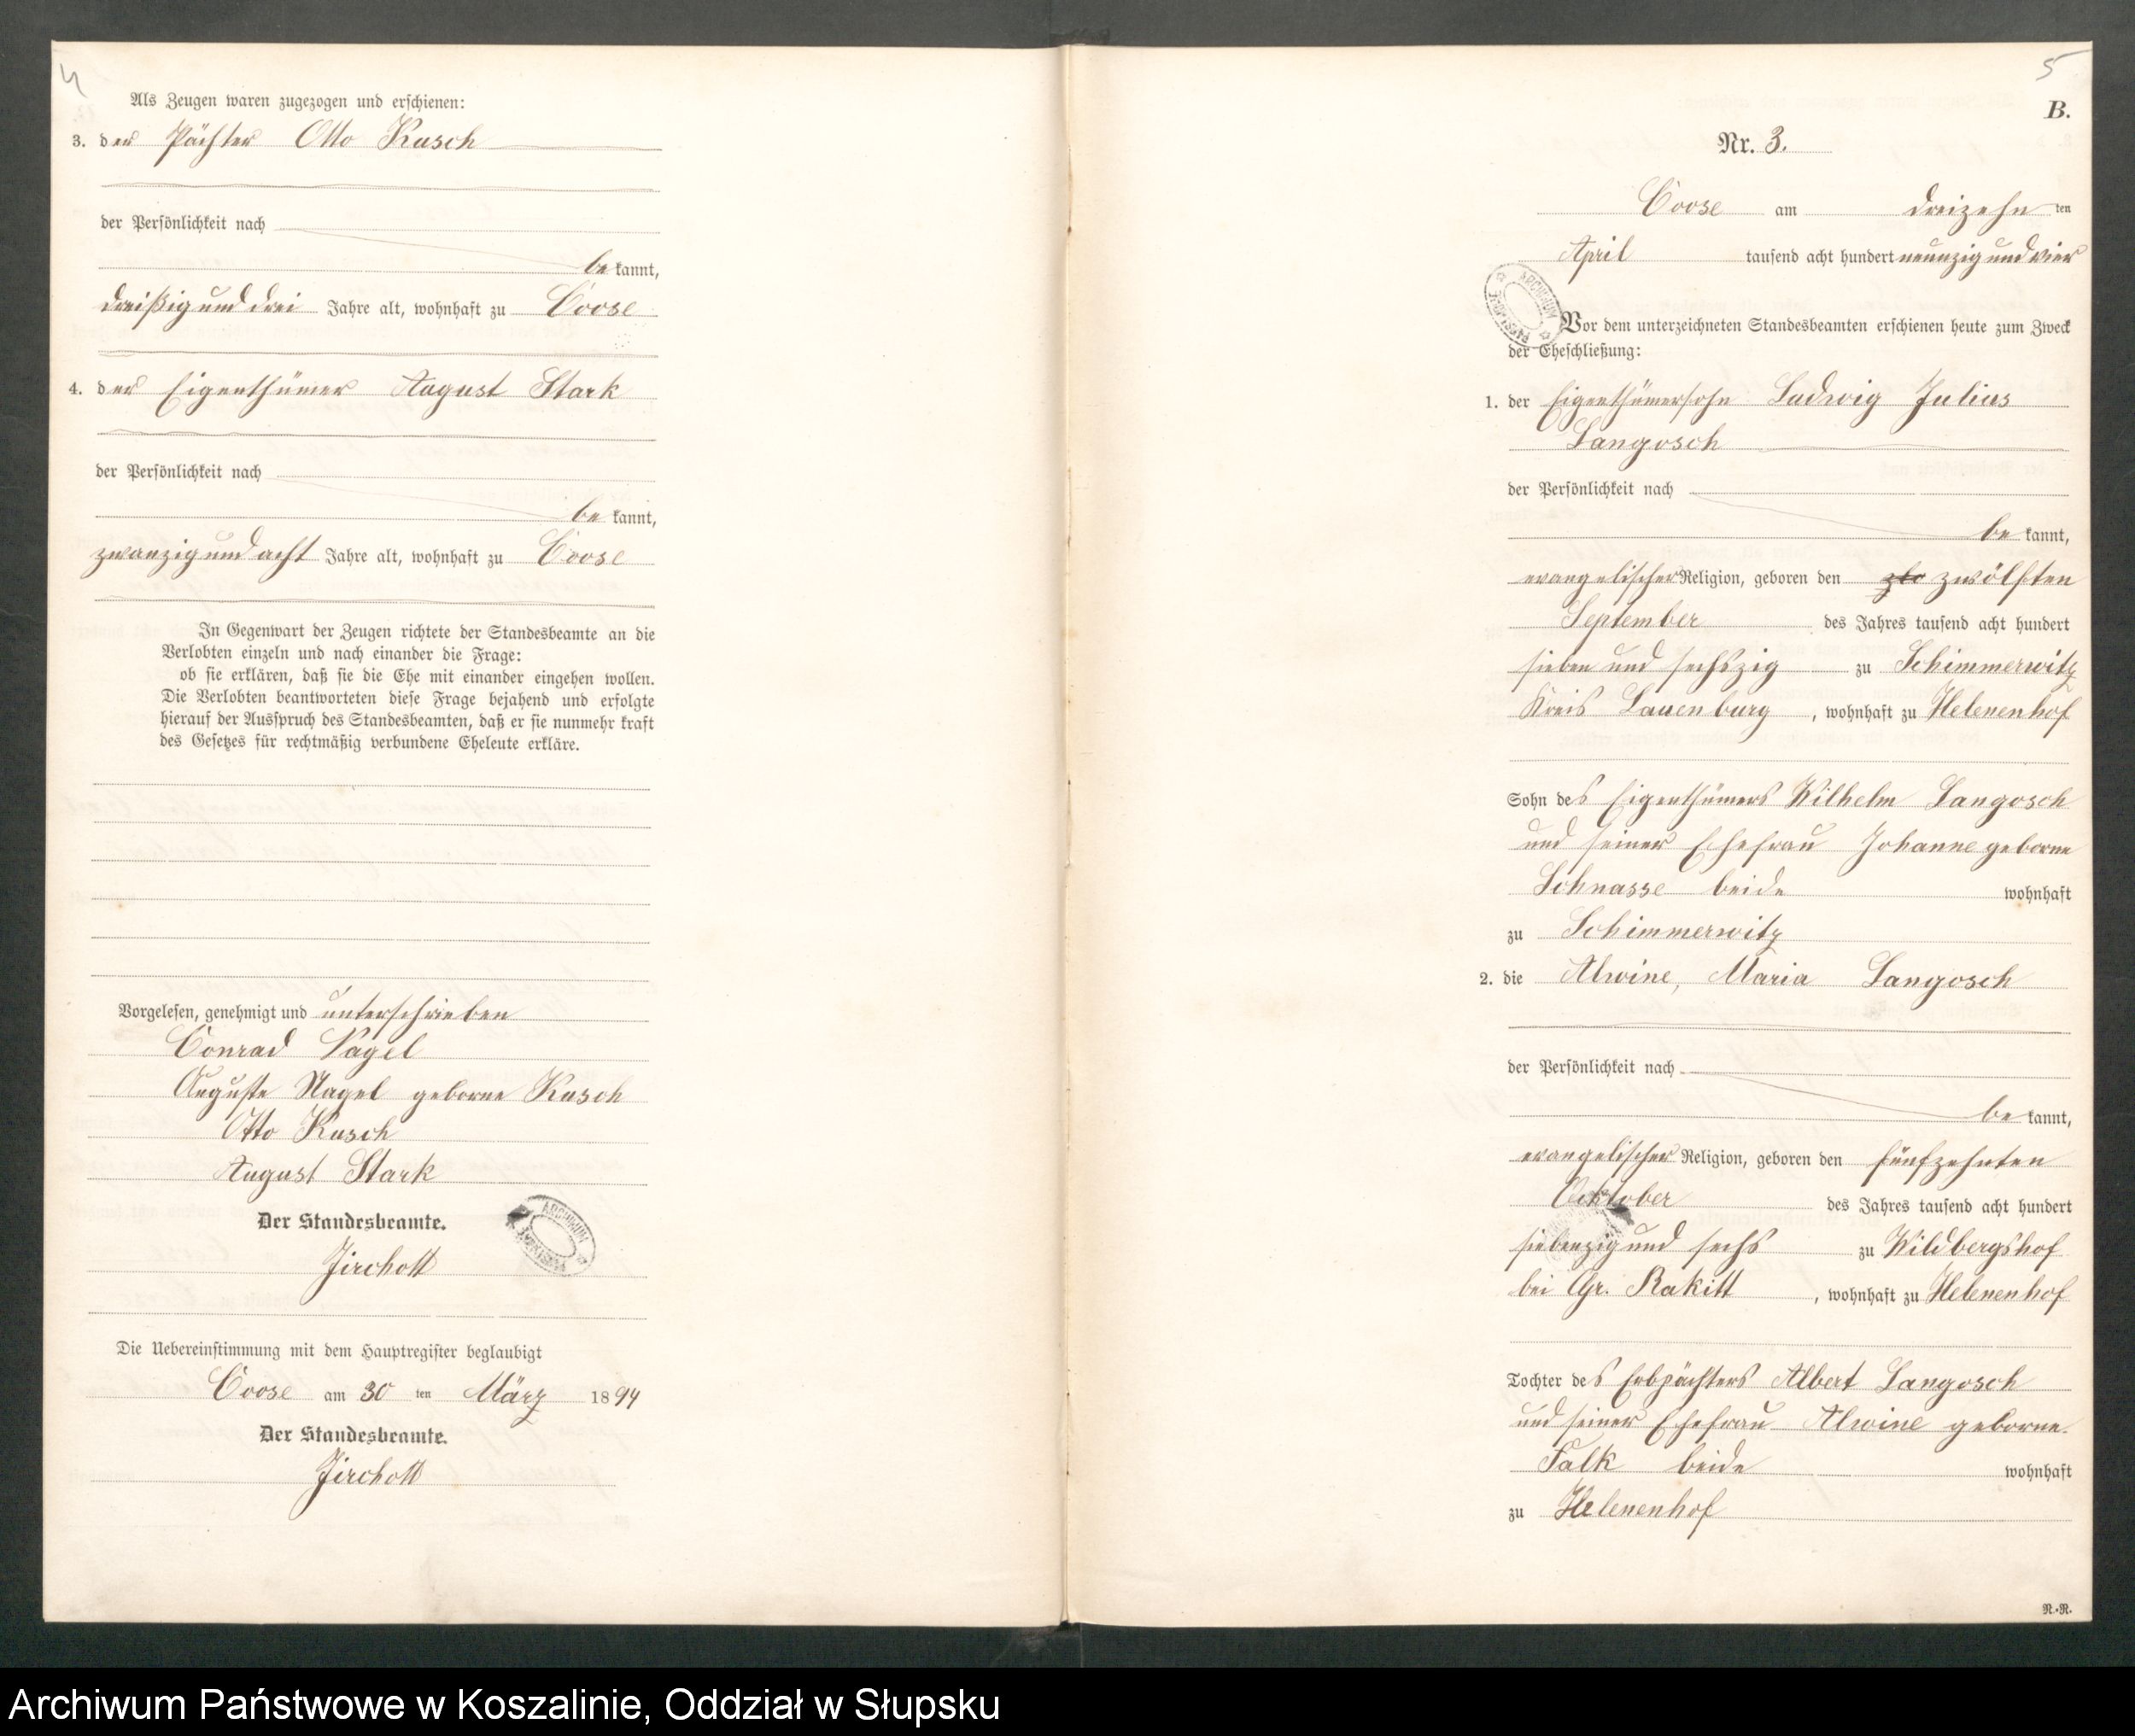 4
Als Zeugen waren zugezogen und erschienen:
3. der Pächter Otto Kusch
der Persönlichkeit nach
bekannt,
dreißig und drei Jahre alt, wohnhaft zu Coose
4. der Eigenthümer August Stark
der Persönlichkeit nach
bekannt,
zwanzig und acht Jahre alt, wohnhaft zu Coose
In Gegenwart der Zeugen richtete der Standesbeamte an die
Verlobten einzeln und nach einander die Frage:
ob sie erklären, daß sie die Ehe mit einander eingehen wollen.
Die Verlobten beantworteten diese Frage bejahend und erfolgte
hierauf der Ausspruch des Standesbeamten, daß er sie nunmehr kraft
des Gesetzes für rechtmäßig verbundene Eheleute erkläre.
Vorgelesen, genehmigt und unterschrieben
Conrad Nagel
Auguste Nagel geborne Kusch
Otto Kusch
August Stark
Der Standesbeamte.
Die Uebereinstimmung mit dem Hauptregister beglaubigt
Coose am 30 ten März 1894
Der Standesbeamte.
5
B.
Nr. 3.
Coose am dreizehnten
April tausend acht hundert neunzig und vier
ARCHIWUM
Vor dem unterzeichneten Standesbeamten erschienen heute zum Zweck
der Eheschließung:
1. der Eigenthümersohn Ludwig Julius
Langosch
der Persönlichkeit nach
bekannt,
evangelischer Religion, geboren den zwölften
September des Jahres tausend acht hundert
sieben und sechszig zu Schimmerwitz
Kreis Lauenburg, wohnhaft zu Helenenhof
Sohn des Eigenthümers Wilhelm Langosch
und seiner Ehefrau Johanne geborne
Schnasse beide wohnhaft
zu Schimmerwitz
2. die Alwine, Maria Langosch
der Persönlichkeit nach
bekannt,
evangelischer Religion, geboren den fünfzehnten
October des Jahres tausend acht hundert
siebenzig und sechs zu Wildbergshof
bei Gr. Rakitt, wohnhaft zu Helenenhof
Tochter des Erbpächters Albert Langosch
und seiner Ehefrau Alwine geborne
Falk beide wohnhaft
zu Helenenhof
R.-R.
Archiwum Państwowe w Koszalinie, Oddział w Słupsku